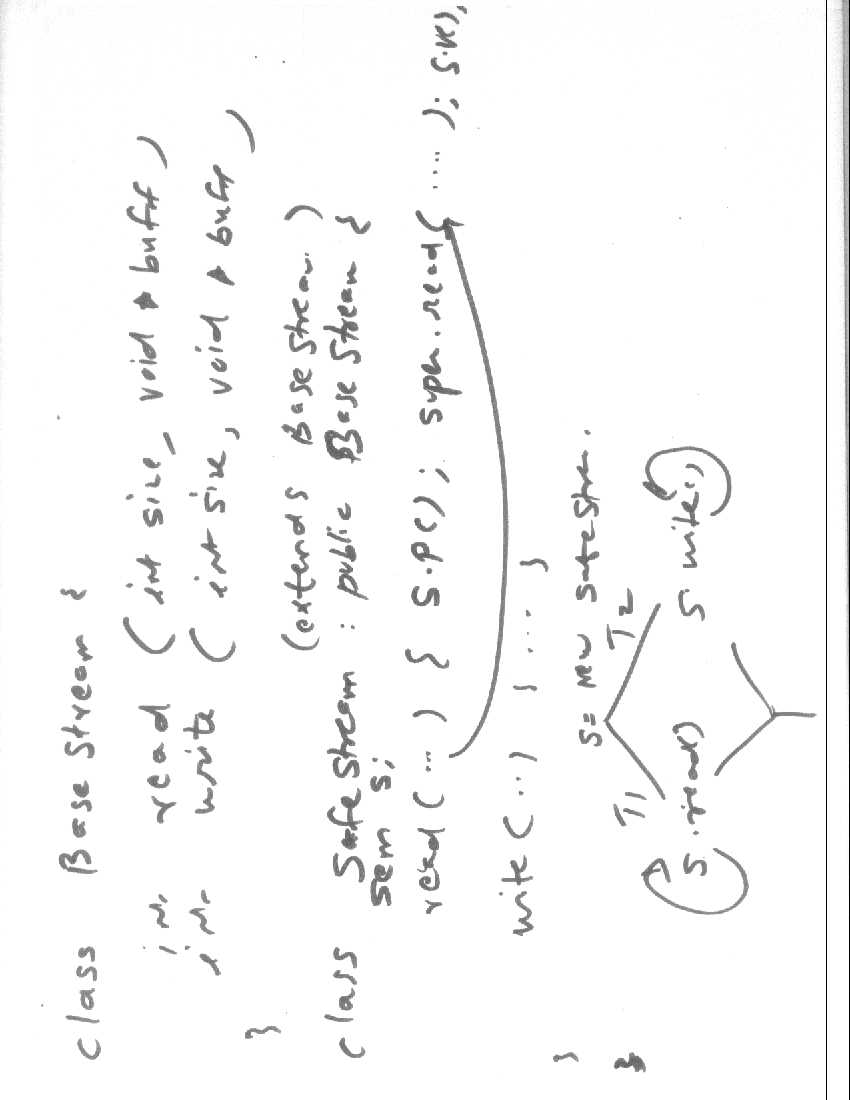 class Base Stream {
int read (int size, void * buff)
int write (int size, void * buff)
}
(extends Base Stream)
class Safe Stream : public Base Stream {
sem s;
read (...) { S.P(); super.read( .... ); S.V(),
write (..) { ... }
}
S= new Safe Stream.
T1 T2
S.read() S write()